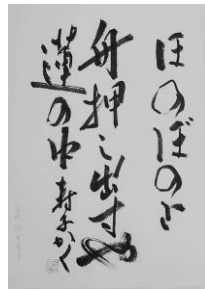 ほのぼのと
舟押し出すや
蓮の中
寿子かく